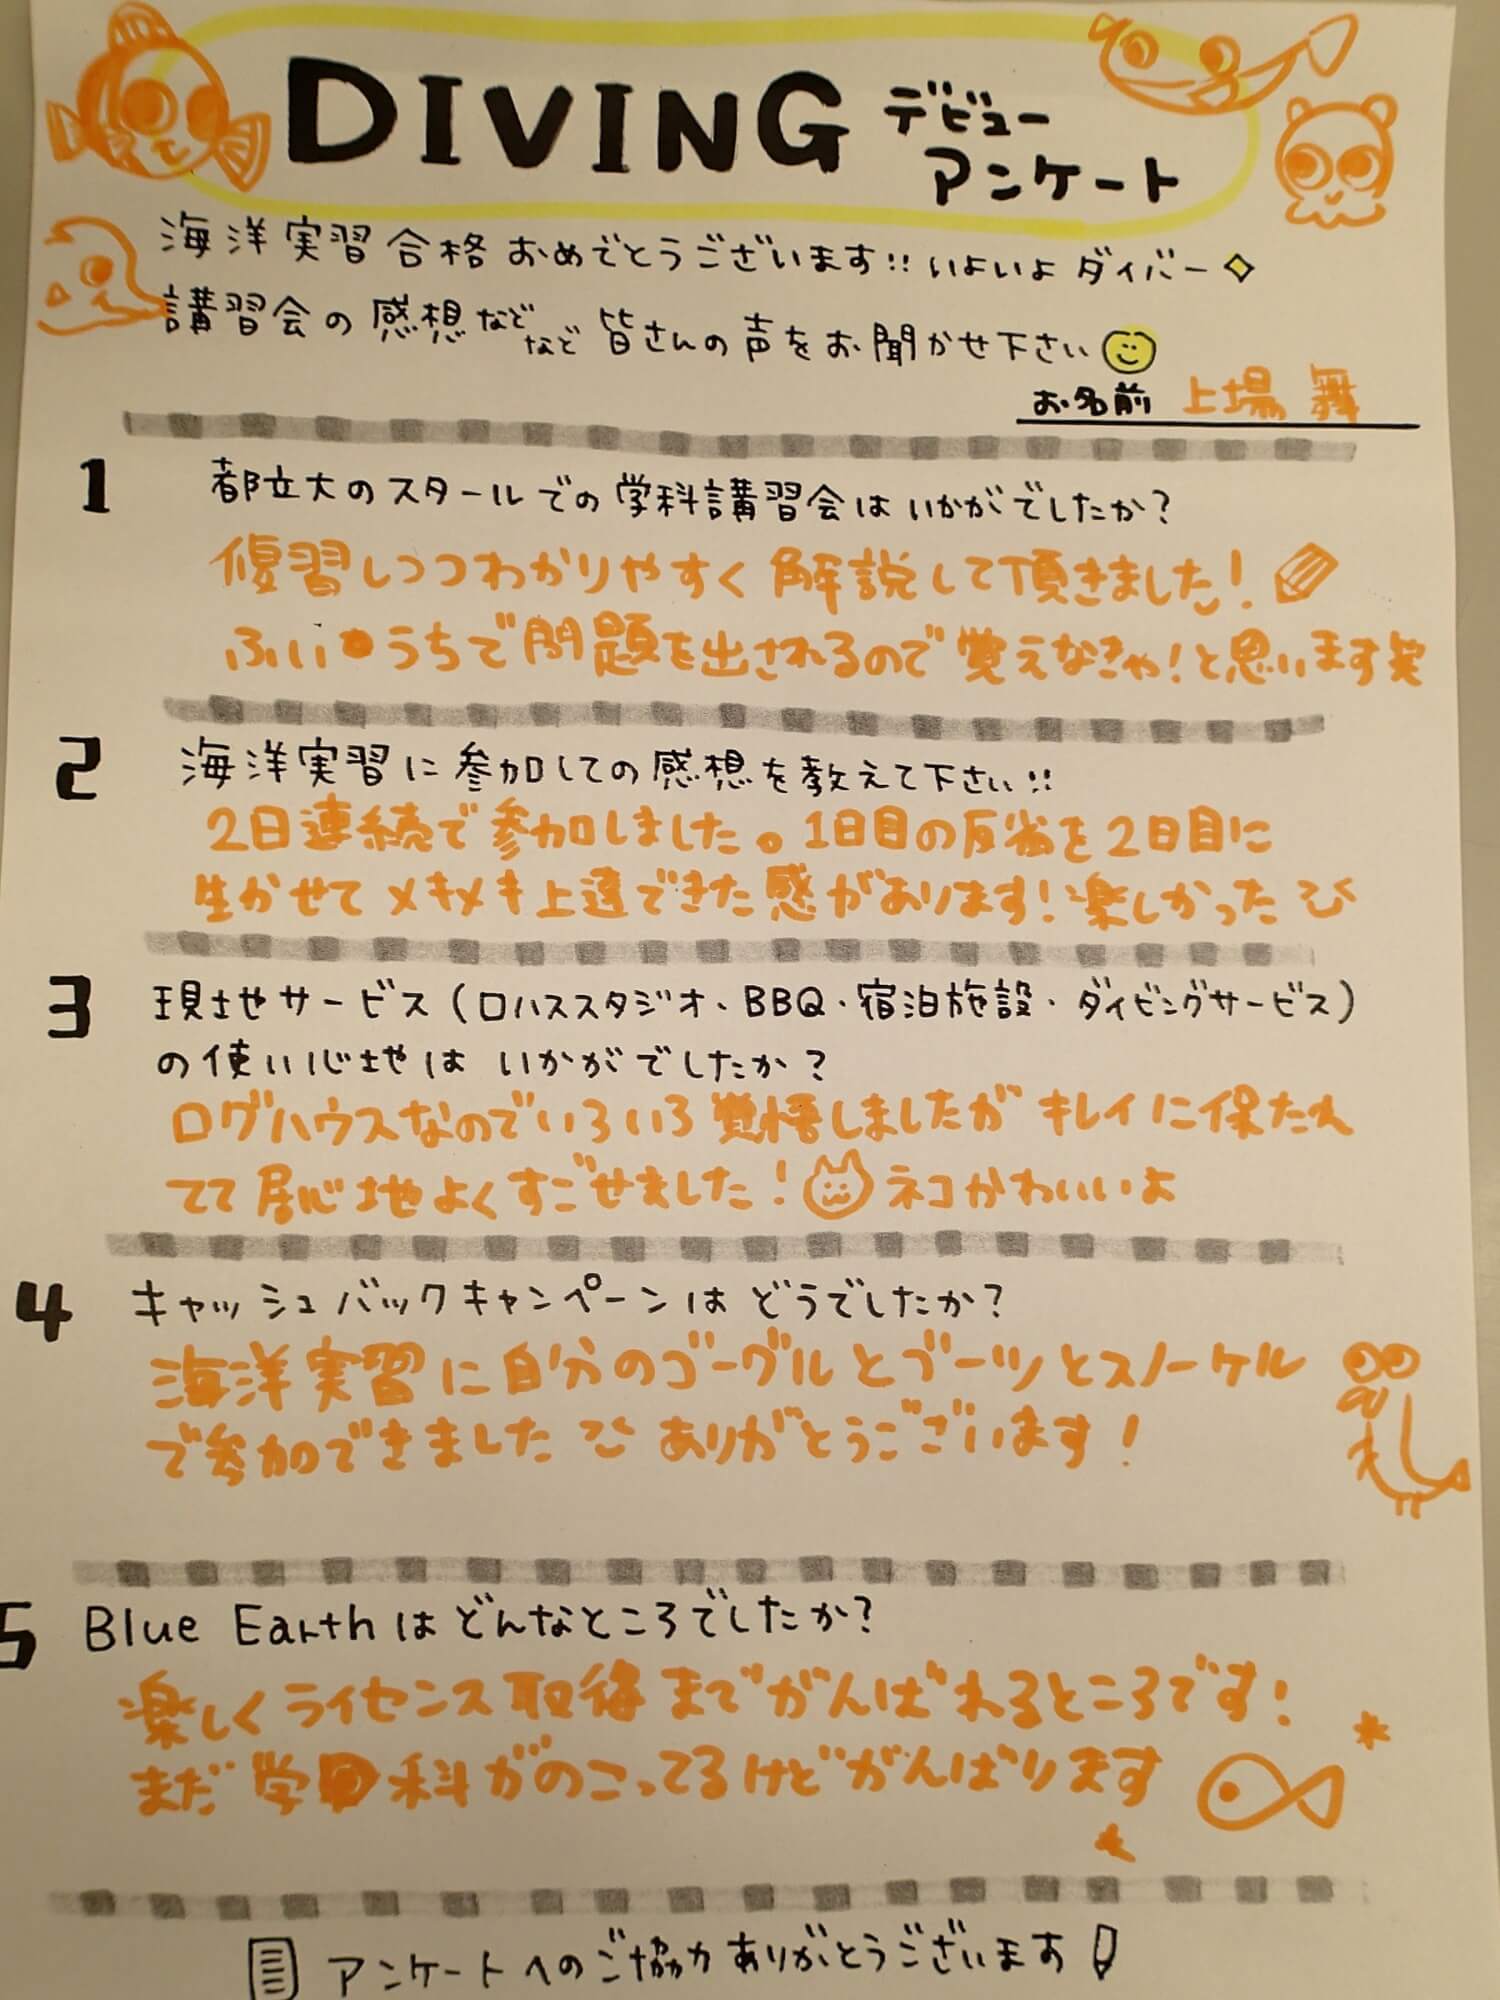 DIVING デビュー
アンケート
海洋実習合格おめでとうございます!! いよいよダイバー
講習会の感想などなど皆さんの声をお聞かせ下さい
お名前 上場 舞
1 都立大のスタールでの学科講習会はいかがでしたか?
復習しつつわかりやすく解説して頂きました!
ふいうちで問題を出されるので覚えなきゃ!と思います笑
2 海洋実習に参加しての感想を教えて下さい!!
2日連続で参加しました。1日目の反省を2日目に
生かせてメキメキ上達できた感があります!楽しかった
3 現地サービス(ロハススタジオ、BBQ・宿泊施設・ダイビングサービス)
の使い心地はいかがでしたか?
ログハウスなのでいろいろ覚悟しましたがキレイに保たれ
てて居心地よくすごせました! ネコかわいいよ
4 キャッシュバックキャンペーンはどうでしたか?
海洋実習に自分のゴーグルとブーツとスノーケル
で参加できました ありがとうございます!
5 Blue Earthはどんなところでしたか?
楽しくライセンス取得までがんばれるところです!
まだ学科がのこってるけどがんばります
アンケートへのご協力ありがとうございます